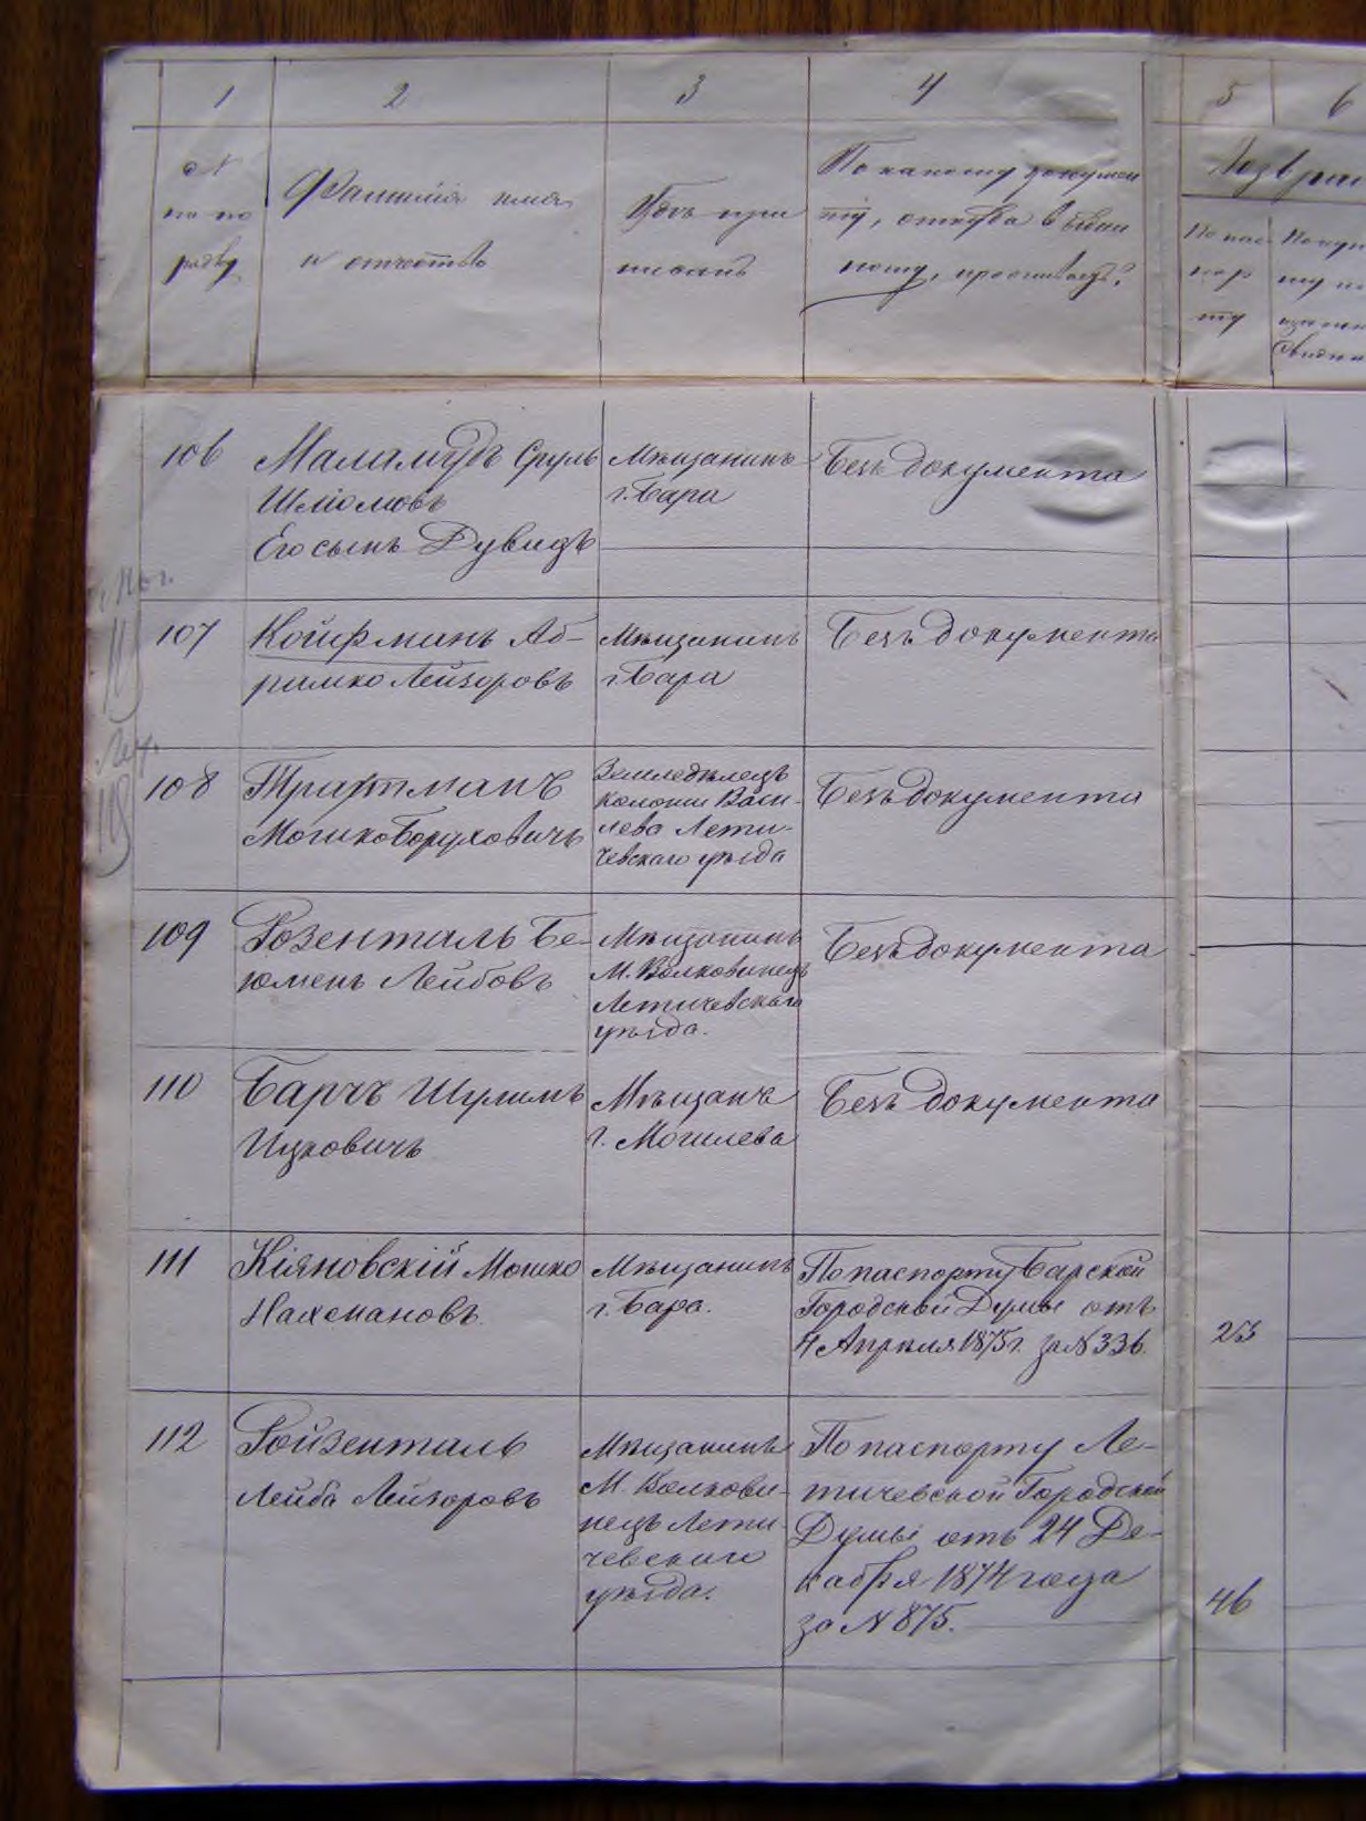 1 2 3 4 5 6
№
по по
рядку
Фамилія имя
и отчество
Гдѣ при
писанъ
По какому докумен
ту, откуда выдан
ному, проживаетъ?
По пас
пор
ту
106 Маламудъ Сруль
Шліомовъ
Его сынъ Дувидъ
Мѣщанинъ
г. Бара
Безъ документа
107 Койфманъ Аб-
рамко Лейзоровъ
Мѣщанинъ
г. Бара
Безъ документа
108 Трафтманъ
Мошко Боруховичъ
Земледѣлецъ
колоніи Васи-
лево Лети-
чевскаго уѣзда
Безъ документа
109 Розенталь Бе-
юменъ Лейбовъ
Мѣщанинъ
М. Волковинецъ
Летичевскаго
уѣзда.
Безъ документа
110 Барчъ Шулимъ
Ицковичъ
Мѣщанъ
г. Могилева
Безъ документа
111 Кіяновскій Мошко
Нахмановъ
Мѣщанинъ
г. Бара.
По паспорту Барской
Городской Думы отъ
4 Апрѣля 1875 г. за № 336.
25
112 Ройзенталь
Лейба Лейзоровъ
Мѣщанинъ
М. Волкови-
нецъ Лети-
чевскаго
уѣзда.
По паспорту Ле-
тичевской Городской
Думы отъ 24 Де-
кабря 1874 года
за № 875.
46